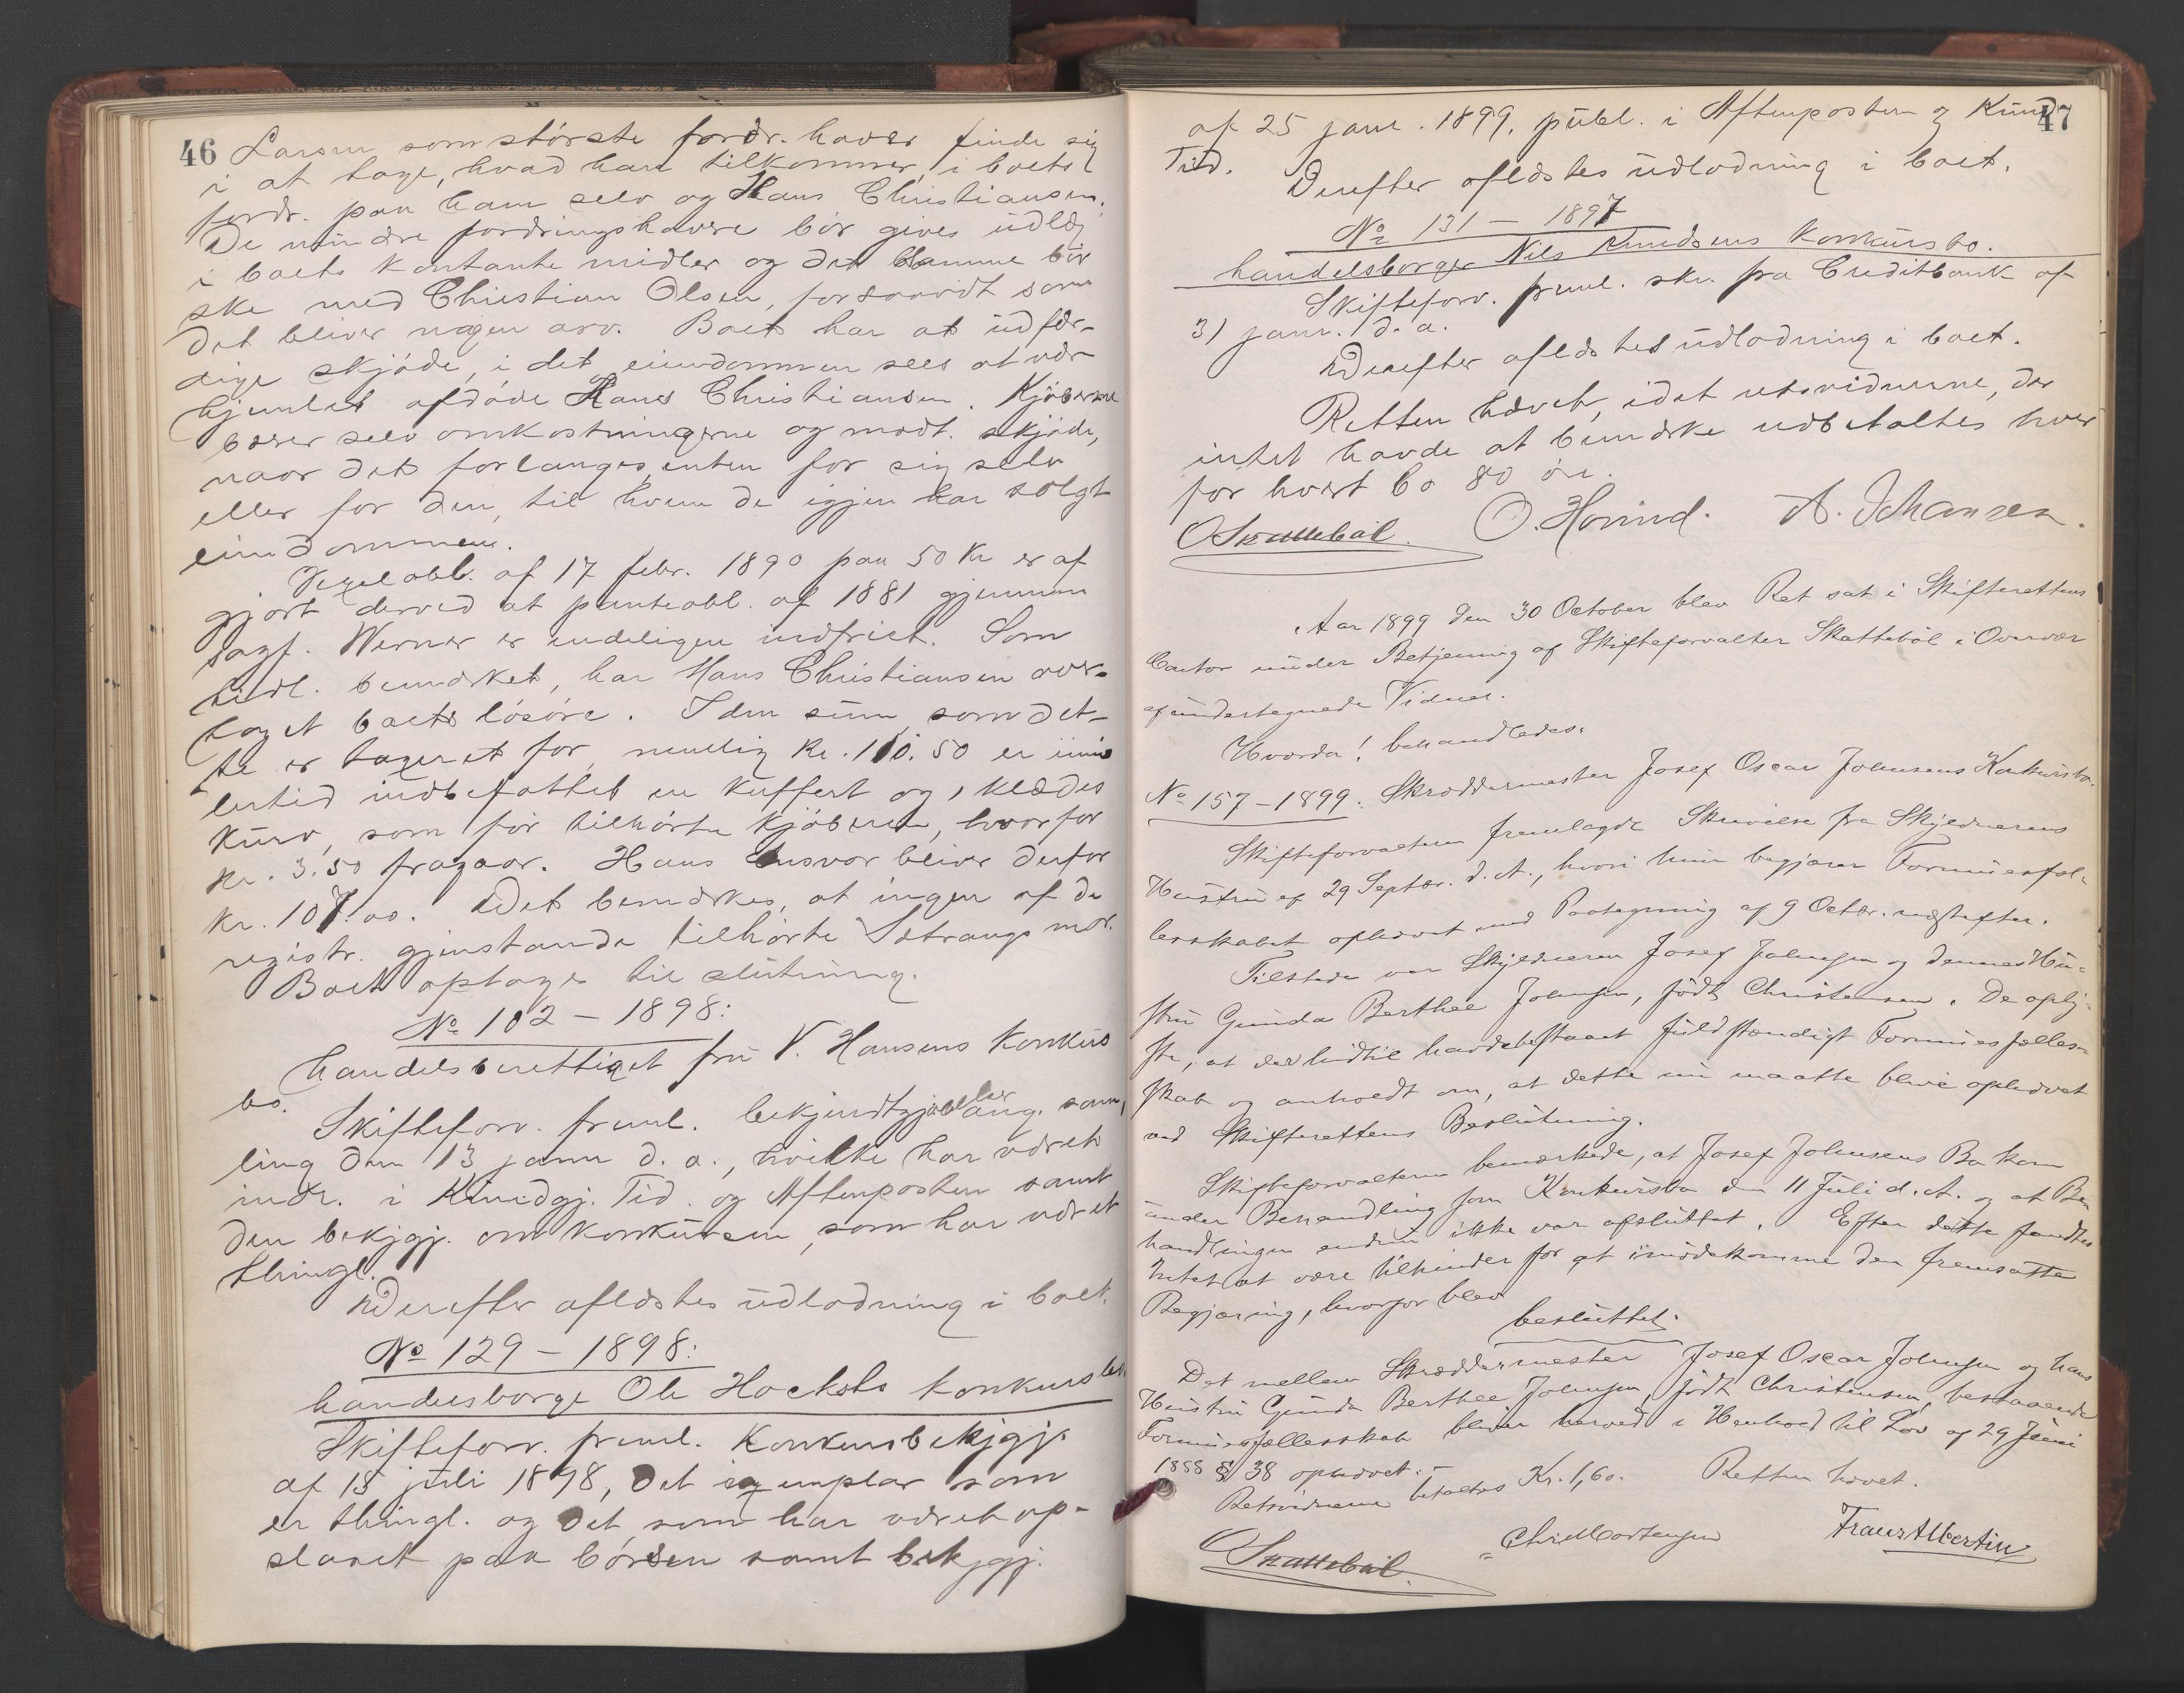 46
Larsen som störste fordr. haver finde sig
i at tage, hvad han tilkommer, i boets
fordr. paa ham selv og Hans Christiansen.
De mindre fordringshavere bör gives udlæg
i boets kontante midler og det samme bör
ske med Christian Olsen, forsaavidt som
det bliver nogen arv. Boet har at udfær-
dige skjöde, i det eiendommen sees at vær
hjemlet afdöde Hans Christiansen. Kjöberne
bærer selv omkostningerne og modt. skjöde,
naar det forlanges, enten for sig selv
eller for den, til hvem de igjen har solgt
eiendommen.
Vexelobl. af 17 febr. 1890 paa 50 Kr er af
gjort derved at panteobl. af 1881 gjennem
sagf. Werner er endeligen indfriet. Som
tidl. bemærket, har Hans Christiansen over-
taget boets lösöre. I den sum som det-
te er taxeret for, nemlig Kr. 110.50 er imid
lertid indbefattet en Kuffert og 1 klædes
kurv, som för tilhörte kjöberen, hvorfor
Kr. 3.50 fragaar. Hans Ansvar bliver derfor
Kr. 107.00. Det bemærkes, at ingen af de
registr. gjenstande tilhörte Sætrangs mor.
Boet optages til slutning.
No 102 - 1898:
handelsberettiget fru V. Hansens konkurs
bo.
Skifteforv. freml. bekjendtgjörelser ang. sam,
ling den 13 janu d. a., hvilke har været
indr. i Kundgj. Tid. og Aftenposten samt
den bekjgj. om konkursen, som har været
thingl.
Derefter aflæstes udlodning i boet.
No 129 - 1898:
handelsborger Ole Hocksts konkursbo
Skifteforv. freml. Konkursbekjgj.
af 15 juli 1898, Det exemplar som
er thingl. og det som har været op-
slaaet paa börsen samt bekjgj.
47
af 25 janr. 1899, publ. i Aftenposten og Kund
Tid.
Derefter aflæstes udlodning i boet.
No 131 - 1897
handelsborger Nils Knudsens Konkursbo.
Skifteforv. freml. skr. fra Creditbank af
31 janr. d. a.
Derefter aflæstes udlodning i boet.
Retten hævet, idet retsvidnerne, der
intet havde at bemærke udbetaltes hver
for hvert bo 80 öre.
OSkattebøl. O. Hovind. A. Johansen.
Aar 1899 den 30 October blev Ret sat i Skifterettens
Contor under Betjening af Skifteforvalter Skattebøl i Overvær
af undertegnede Vidner.
Hvorda! behandledes:
No 157-1899. Skræddermester Josef Oscar Johnsens Konkursbo.
Skifteforvalteren fremlagde Skrivelse fra Skyldnerens
Hustru af 29 Septbr. d. A., hvori hun begjærer Formuesfæl-
lesskabet ophævet med Paategning af 9 Octbr. næstefter.
Tilstede var Skyldneren Josef Johnsen og dennes Hu-
stru Gunda Berthee Johnsen, födt Christensen. De oply-
ste, at der hidtil havde bestaaet fuldstændigt Formuesfælles-
skab og anholdt om, at dette nu maatte blive ophævet
ved Skifterettens Beslutning.
Skifteforvalteren bemærkede, at Josef Johnsens Bo kom
under Behandling som Konkursbo den 11 Juli d. A. og at Be
handlingen endnu ikke var afsluttet. Efter dette fandtes
Intet at være til hinder for at imödekomme den fremsatte
Begjæring, hvorfor blev
besluttet:
Det mellem Skræddermester Josef Oscar Johnsen og hans
Hustru Gunda Berthee Johnsen, födt Christensen, bestaaende
Formuesfællesskab bliver herved i Henhold til Lov af 29 Juni
1888 § 38 ophævet.-
Retsvidnerne betaltes Kr. 1,60. Retten hævet.
OSkattebøl. Chr Mortensen Franz Albertin